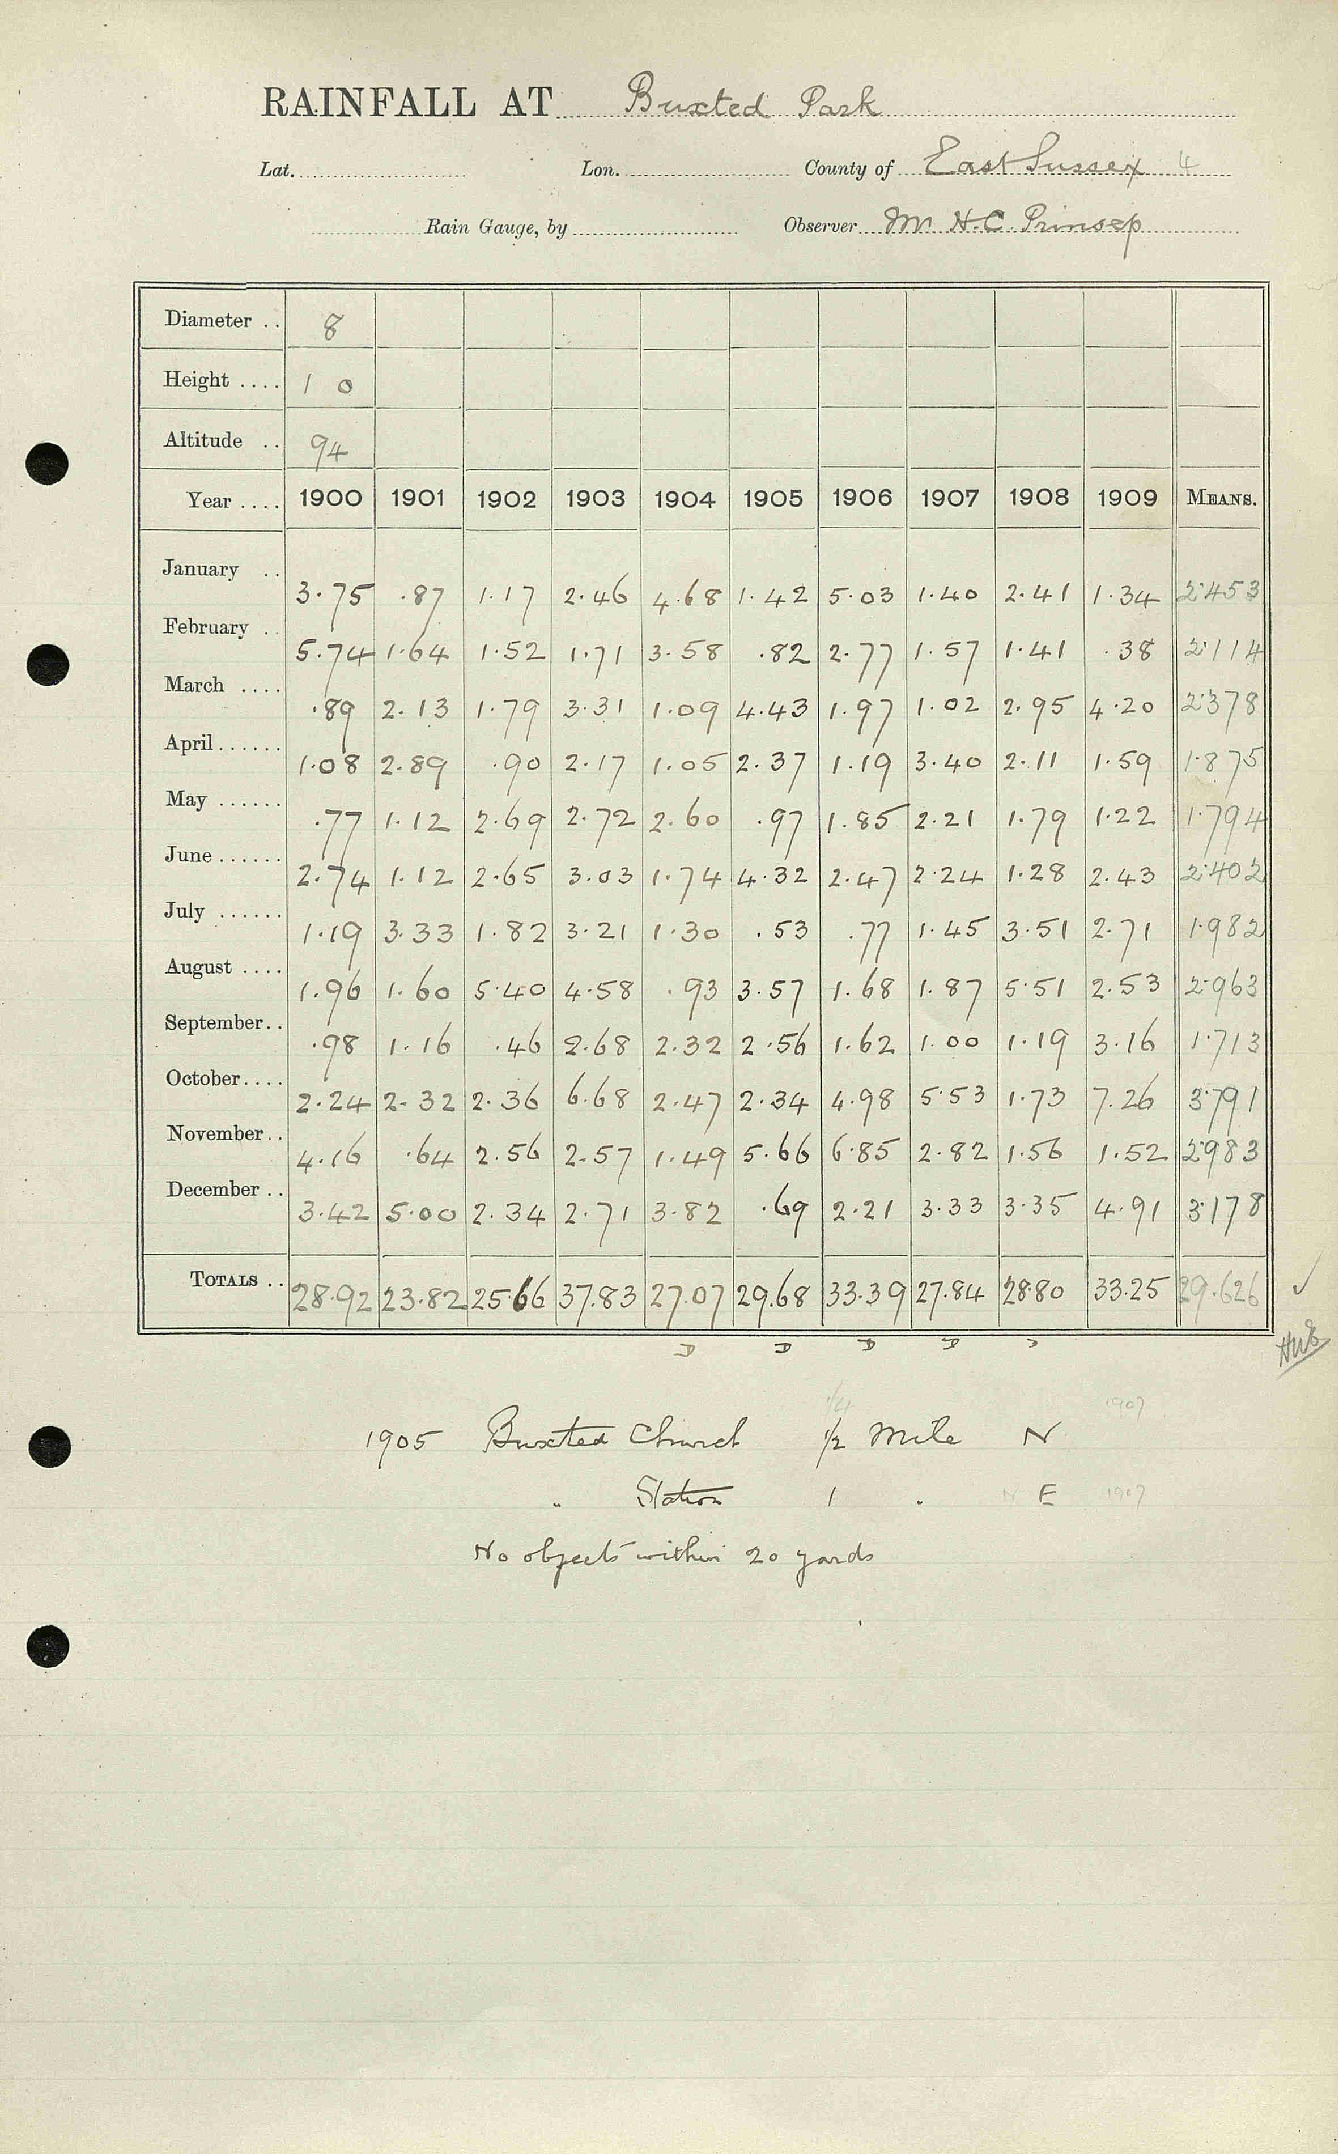 RAINFALL AT Buxted Park
Lat. Lon. County of East Sussex 4
Rain Gauge, by Observer Mr H.C. Prinsep
Diameter .. 8
Height .... 1 0
Altitude .. 94
Year .... 1900 1901 1902 1903 1904 1905 1906 1907 1908 1909 MEANS.
January .. 3.75 .87 1.17 2.46 4.68 1.42 5.03 1.40 2.41 1.34 2.453
February .. 5.74 1.64 1.52 1.71 3.58 .82 2.77 1.57 1.41 .38 2.114
March .... .89 2.13 1.79 3.31 1.09 4.43 1.97 1.02 2.95 4.20 2.378
April ...... 1.08 2.89 .90 2.17 1.05 2.37 1.19 3.40 2.11 1.59 1.875
May ...... .77 1.12 2.69 2.72 2.60 .97 1.85 2.21 1.79 1.22 1.794
June ...... 2.74 1.12 2.65 3.03 1.74 4.32 2.47 2.24 1.28 2.43 2.402
July ...... 1.19 3.33 1.82 3.21 1.30 .53 .77 1.45 3.51 2.71 1.982
August .... 1.96 1.60 5.40 4.58 .93 3.57 1.68 1.87 5.51 2.53 2.963
September .. .98 1.16 .46 2.68 2.32 2.56 1.62 1.00 1.19 3.16 1.713
October .... 2.24 2.32 2.36 6.68 2.47 2.34 4.98 5.53 1.73 7.26 3.791
November .. 4.16 .64 2.56 2.57 1.49 5.66 6.85 2.82 1.56 1.52 2.983
December .. 3.42 5.00 2.34 2.71 3.82 .69 2.21 3.33 3.35 4.91 3.178
TOTALS .. 28.92 23.82 25.66 37.83 27.07 29.68 33.39 27.84 28.80 33.25 29.626 ✓
D D D D
1/4 1907
1905 Buxted Church 1/2 Mile N
" Station 1 " N E 1907
No objects within 20 yards